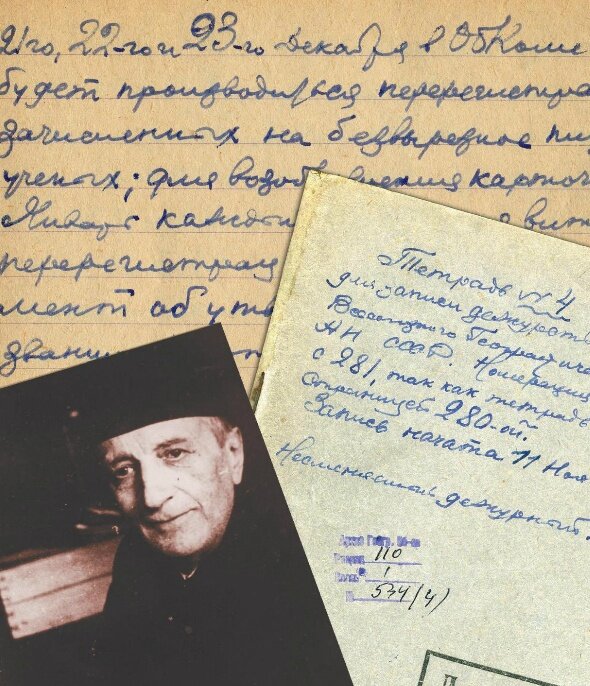 21го, 22-го и 23-го декабря в Обкоме
будет производиться перерегистра
зачисленных на безвыредное
ученых; для возоб вления карточ
Январь каждый
перерегистрац
мент об ут
звани
Тетрадь № 4
для записи дежурств
Всесоюзного Географиче
АН СССР. Нумерация
с 281, так как тетрадь
страницей 280-ой.
Запись начата 11 Ноя
Несменяемый дежурный.
Архив Геогр. об-ва
Разряд 110
1
№ 534 (4)